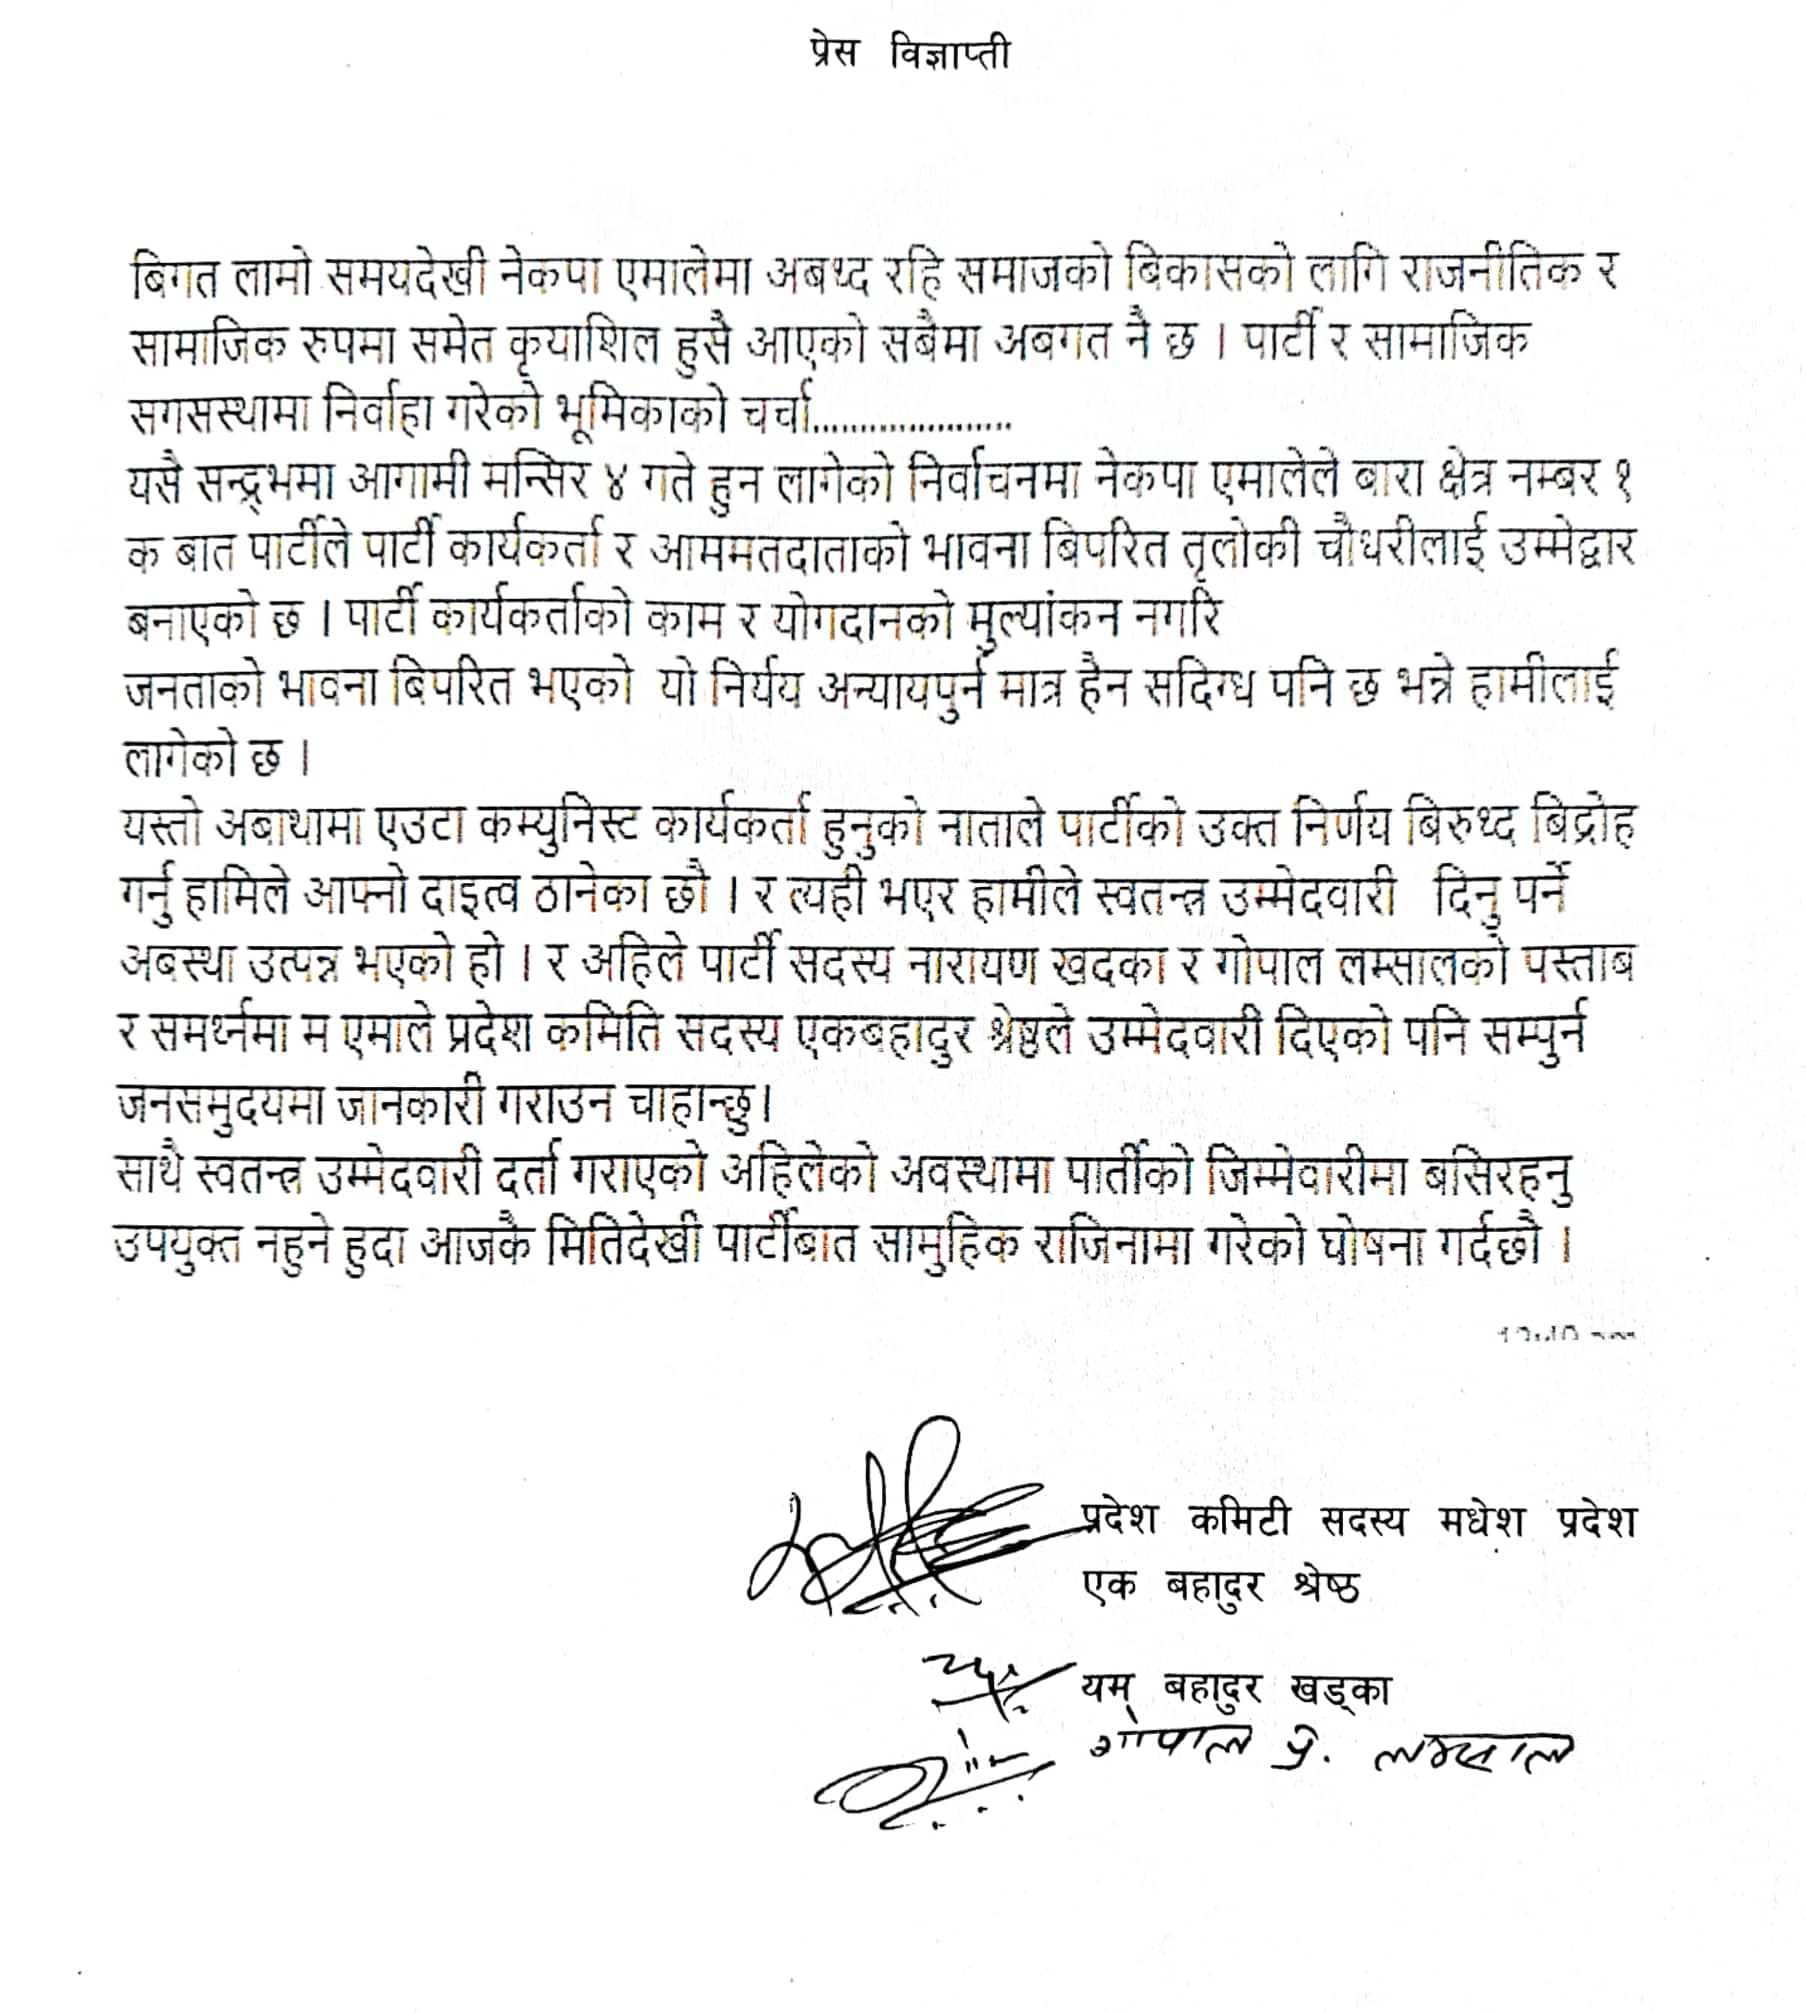 प्रेस विज्ञाप्ती
बिगत लामो समयदेखी नेकपा एमालेमा अबध्द रहि समाजको बिकासको लागि राजनीतिक र
सामाजिक रुपमा समेत कृयाशिल हुसै आएको सबैमा अबगत नै छ । पार्टी र सामाजिक
सगसस्थामा निर्वाहा गरेको भूमिकाको चर्चा.....................
यसै सन्द्र्भमा आगामी मन्सिर ४ गते हुन लागेको निर्वाचनमा नेकपा एमालेले बारा क्षेत्र नम्बर १
क बात पार्टीले पार्टी कार्यकर्ता र आममतदाताको भावना बिपरित तृलोकी चौधरीलाई उम्मेद्वार
बनाएको छ । पार्टी कार्यकर्ताको काम र योगदानको मुल्यांकन नगरि
जनताको भावना बिपरित भएको यो निर्यय अन्यायपुर्न मात्र हैन सदिग्ध पनि छ भन्ने हामीलाई
लागेको छ ।
यस्तो अबाथामा एउटा कम्युनिस्ट कार्यकर्ता हुनुको नाताले पार्टीको उक्त निर्णय बिरुध्द बिद्रोह
गर्नु हामिले आफ्नो दाइत्व ठानेका छौ । र त्यही भएर हामीले स्वतन्त्र उम्मेदवारी दिनु पर्ने
अबस्था उत्पन्न भएको हो । र अहिले पार्टी सदस्य नारायण खदका र गोपाल लम्सालको पस्ताब
र समर्थ्नमा म एमाले प्रदेश कमिति सदस्य एकबहादुर श्रेष्ठले उम्मेदवारी दिएको पनि सम्पुर्न
जनसमुदयमा जानकारी गराउन चाहान्छु।
साथै स्वतन्त्र उम्मेदवारी दर्ता गराएको अहिलेको अवस्थामा पार्तीको जिम्मेवारीमा बसिरहनु
उपयुक्त नहुने हुदा आजकै मितिदेखी पार्टीबात सामुहिक राजिनामा गरेको घोषना गर्दछौ ।
प्रदेश कमिटी सदस्य मधेश प्रदेश
एक बहादुर श्रेष्ठ
यम् बहादुर खड्का
गोपाल प्र. लम्साल